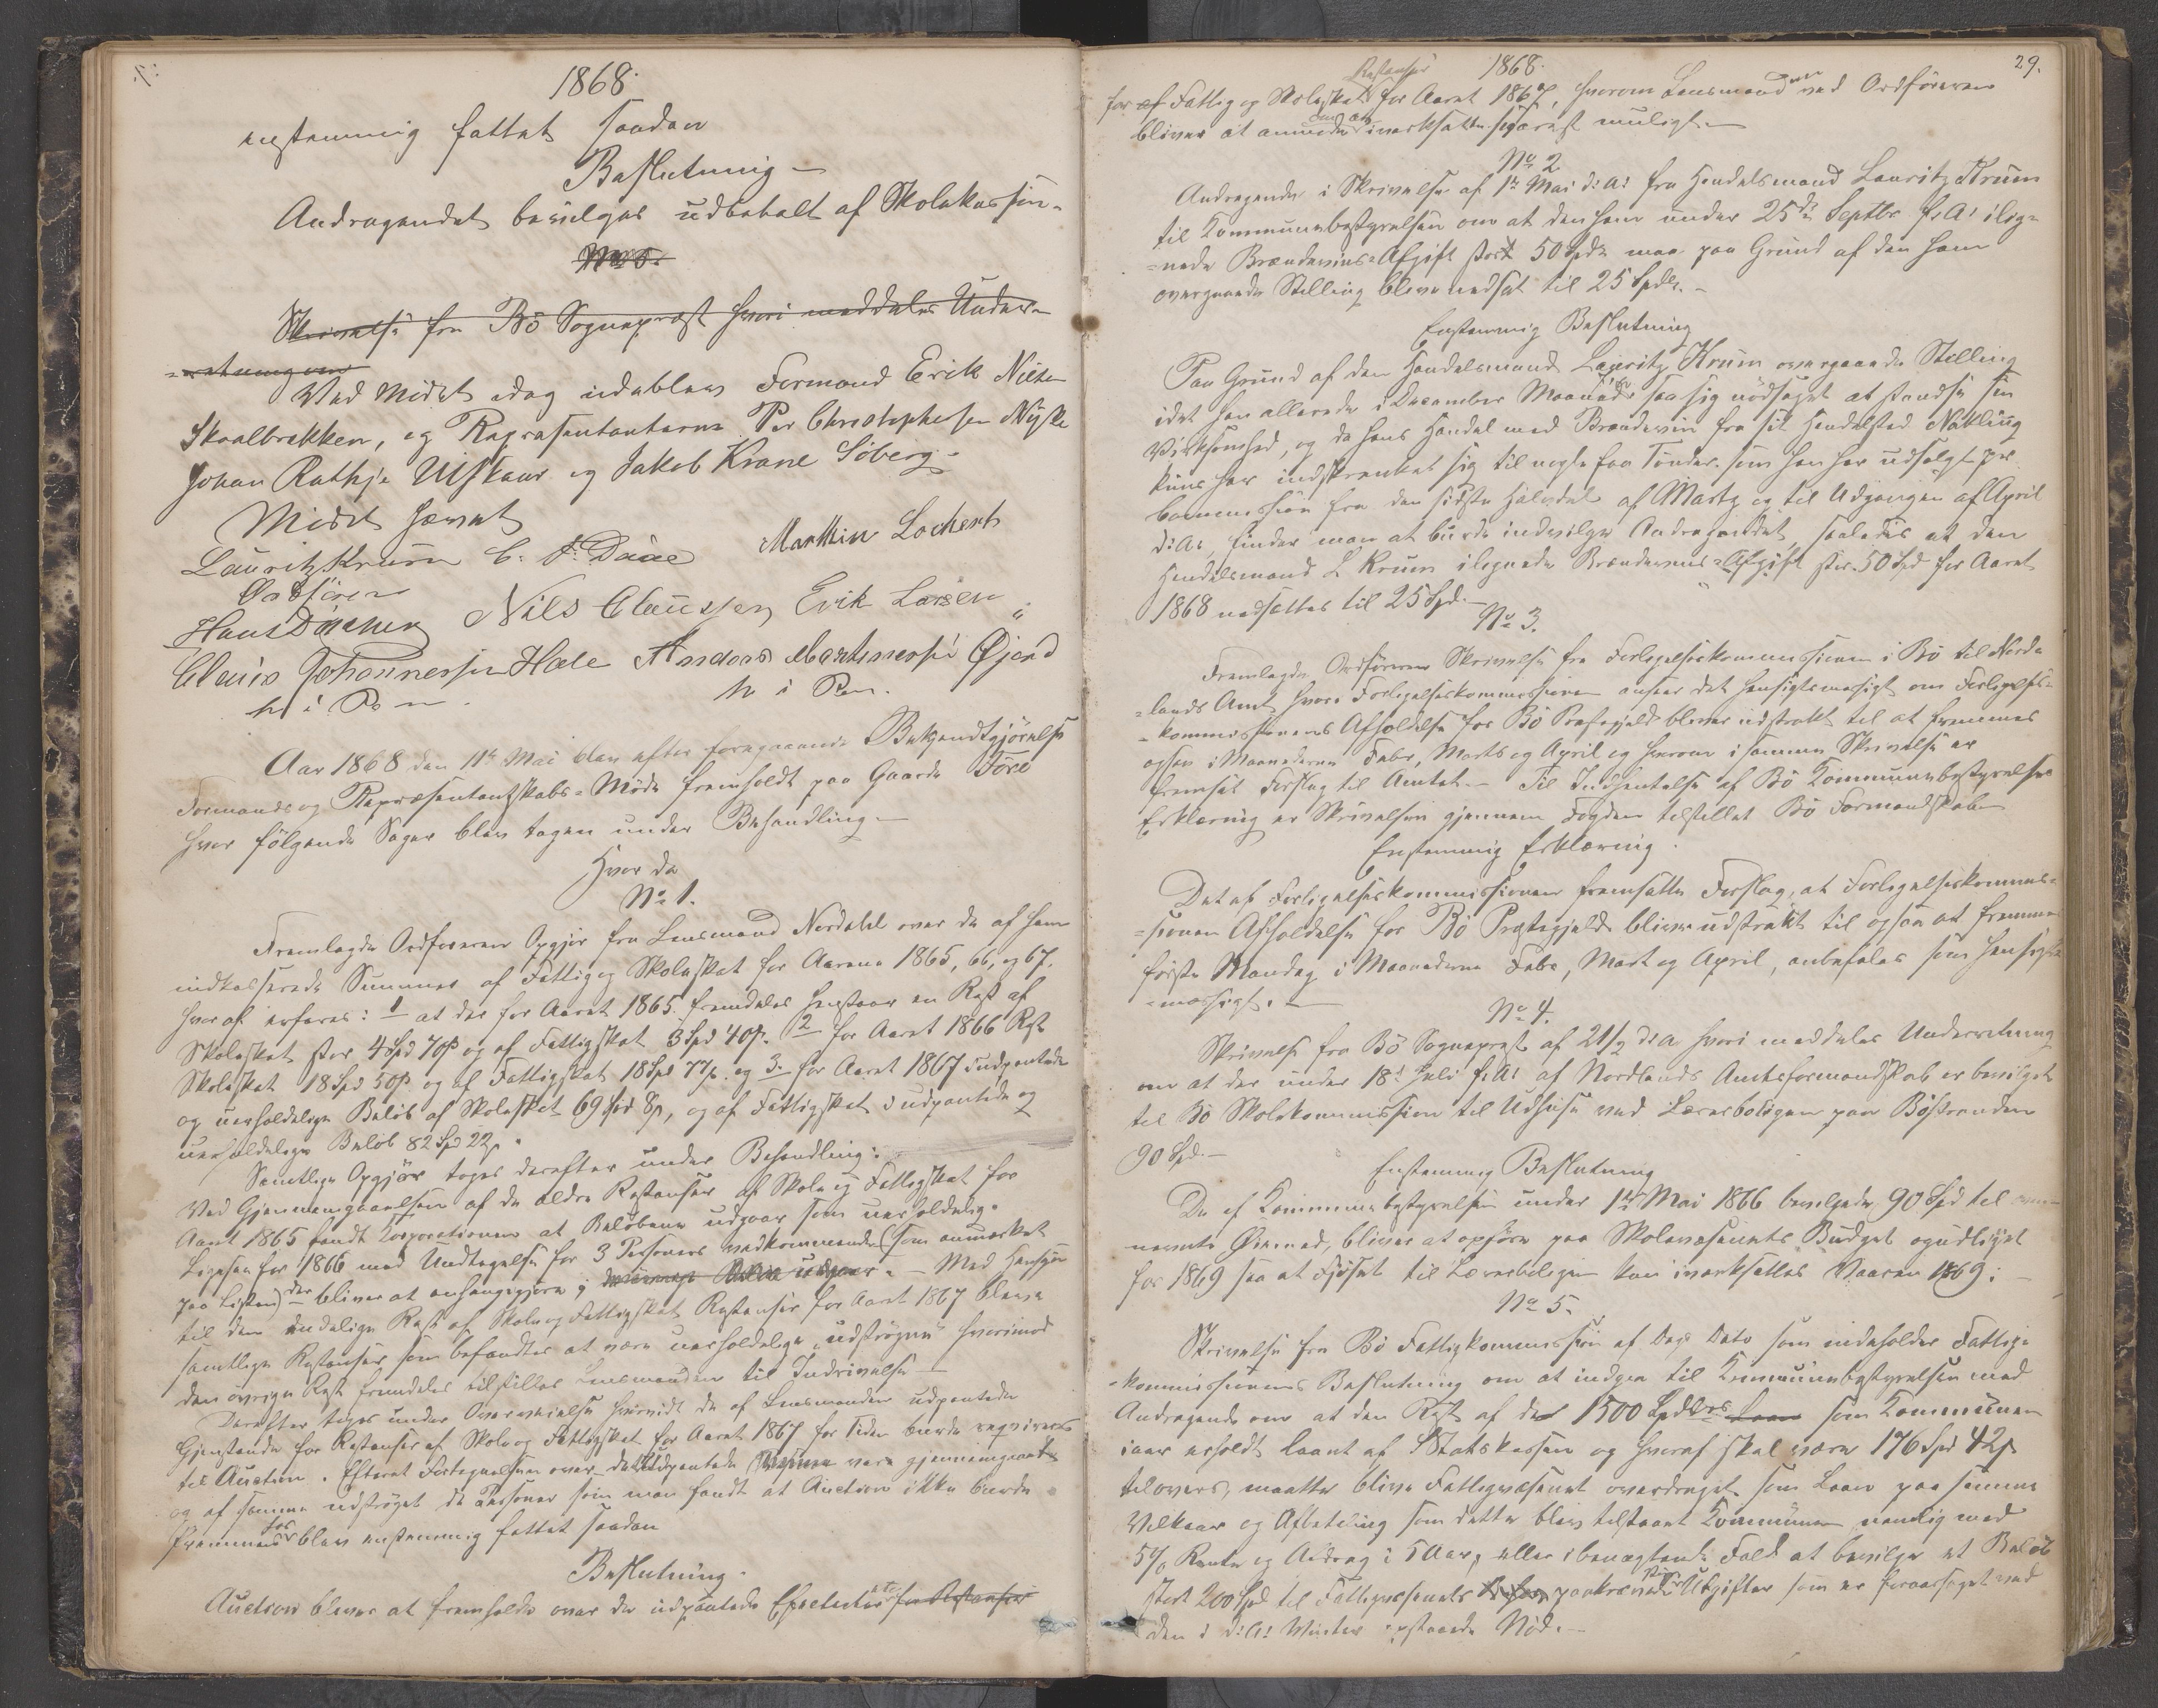 1868.
enstemmig fattet saadan
Beslutning –
Andragendet bevilges udbetalt af Skolekassen.
No 5.
Skrivelse fra Bö Sogneprest hvori meddeles Under-
-retning om
Ved Mödet idag udeblev Formand Erik Nilsen
Skaalbrekken, og Repræsentanterne Per Christophersen Nyke
Johan Rathje Uiskaar og Jakob Krane Söberg.
Mödet hævet
Lauritz Kruse C. F. Daae Marthin Lochert
Ordförer
Hans Dörcher Nils Claussen Erik Larsen
Claus Johannessen Hale Andors Martinessen Øjord
m i Pen. m i Pen.
Aar 1868 den 11te Mai blev efter foregaaende Bekjendtgjörelse
Formands og Repræsentantskabs-Möde fremholdt paa Gaarde Före
hvor fölgende Sager blev tagen under Behandling –
Hvor da
No 1.
Fremlagde Ordföreren Opgjör fra Lensmand Nordahl over de af ham
indkasserede Summer af Fattig og Skoleskat for Aarene 1865, 66, og 67.
hvoraf erfares: 1 at der for Aaret 1865 fremdeles henstaar en Rest af
Skoleskat stor 4 Spd 70 s og af Fattigskat 3 Spd 40 s. 2 for Aaret 1866 Rest
Skoleskat 18 Spd 50 s og af Fattigskat 18 Spd 77 s. og 3. for Aaret 1867 udpantede
og uerholdelige Belöb af Skoleskat 69 Spd 8 s, og af Fattigskat udpantede og
uerholdelige Belöb 82 Spd 22 s.
Samtlige Opgjör toges derefter under Behandling:
Ved Gjennemgaaelsen af de ældre Restanser af Skole og Fattigskat for
Aaret 1865 fandt Korporationen at Belöbene udgaar som uerholdelig.
Ligesaa for 1866 med Undtagelse for 3 Personers vedkommende (som anmærket
paa Listen) der bliver at anhengiggjöre; udgaar. – Med Hensyn
til den endelige Rest af Skole og Fattigskat Restanser for Aaret 1867 bleve
samtlige Restanser som befandtes at være uerholdelige, udströgne hvorimod
den övrige Rest fremdeles tilstilles Lensmanden til Inddrivelse –
Derefter toges under Overveielse hvorvidt de af Lensmanden udpantede
Gjenstande for Restanser af Skole og Fattigskat for Aaret 1867 for Tiden burde reqvireres
til Auction. Efterat Fortegnelsen over det Udpantede var gjennemgaaet
og af samme udströget de Personer som man fandt at Auction ikke burde
fremmes for blev enstemmig fattet saadan
Beslutning.
Auction bliver at fremholde over de udpantede Effecter for Restanser
1868. 29.
Restanser
for af Fattig og Skoleskat for Aaret 1867, hvorom Lensmanden ved Ordföreren
bliver at anmode om at iverksætte snarest muligt. –
No 2
Andragende i Skrivelse af 1te Mai d: A: fra Handelsmand Lauritz Kruse
til Kommunebestyrelsen om at den ham under 25de Septbr f. A: ilig-
-nede Brændevins-Afgift stort 50 Spdr maa paa Grund af den ham
overgaaede Stilling blive nedsat til 25 Spdlr. –
Enstemmig Beslutning
Paa Grund af den Handelsmand Lauritz Kruse overgaaede Stilling
idet han allerede i December Maaned saa sig nödsaget at standse sin
Virksomhed, og da hans Handel med Brændevin fra sit Handelsted Nÿkling
kun har indskrænket sig til nogle faa Tönder, som han har udsolgt per
Commission fra den sidste Halvdel af Marts og til Udgangen af April
d: A:, finder man at burde indvilge Andragendet, saaledes at den
Handelsmand L Kruse ilignede Brændevins-Afgift stor 50 Spd for Aaret
1868 nedsættes til 25 Spd. –
No 3.
Fremlagde Ordföreren Skrivelse fra Forligelseskommissionen i Bö til Nord-
-lands Amt hvori Forligelseskommissionen anseer det hensigtsmæssigt om Forligelses-
-kommissionens Afholdelse for Bö Præstegjeld bliver udstrakt til at fremmes
ogsaa i Maanederne Febr, Marts og April og hvorom i samme Skrivelse er
fremsat Forslag til Amtet. – Til Indhentelse af Bö Kommunebestyrelses
Erklæring er Skrivelsen gjennem Fogden tilstillet Bö Formandskab
Enstemmig Erklæring.
Det af Forligelseskommissionen fremsatte Forslag, at Forligelseskommis-
-sionen Afholdelse for Bö Prestegjeld bliver udstrakt til ogsaa at fremmes
förste Mandag i Maanederne Febr, Mart og April, anbefales som hensigts-
-mæssigt. –
No 4.
Skrivelse fra Bö Sogneprest af 21/2 d: A hvori meddeles Underretning
om at der under 18de Juli f: A: af Nordlands Amtsformandskab er bevilget
til Bö Skolekommission til Udhuse ved Lærerboligen paa Böstranden
90 Spd. –
Enstemmig Beslutning
De af Kommunebestyrelsen under 1te Mai 1866 bevilgede 90 Spd til om-
nævnte Öiemed, bliver at opföre paa Skolevæsenets Budget og udlignet
for 1869 saa at Fjöset til Lærerboligen kan iverksættes Vaaren 1869: –
No 5.
Skrivelse fra Bö Fattigkommission af Dags Dato som indeholder Fattig-
-kommissionens Beslutning om at indgaa til Kommunebestyrelsen med
Andragende om at den Rest af de 1500 Spdlrs Laan som Kommunen
iaar erholdt laant af Statskassen og hvoraf skal være 176 Spd 42 s
tilovers, maatte blive Fattigvæsenet overdraget som Laan paa samme
Vilkaar og Afbetaling som dette blev tilstaaet Kommunen nemlig med
5% Rente og Afdrag i 5 Aar, eller i benegtende Fald at bevilge et Belöb
stort 200 Spd til Fattigvæsenets paakrævede Udgifter som er foraarsaget ved
den i d: A: Vinter opstaaede Nöd. –